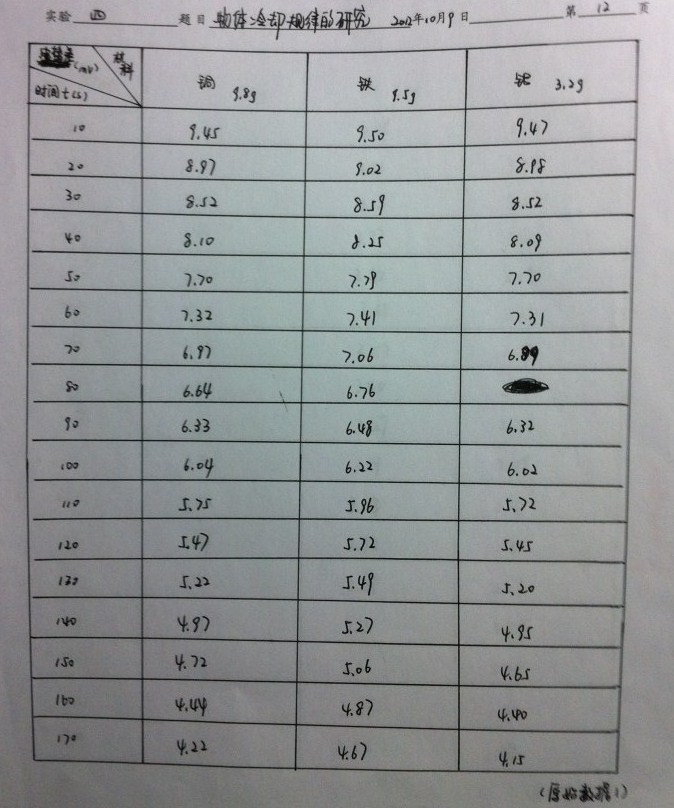 实验 四 题目 物体冷却规律的研究 2012年10月9日 第 12 页
(mv) 材料
时间t(s) 铜 9.8g 铁 9.5g 铝 3.2g
10 9.45 9.50 9.47
20 8.97 9.02 8.98
30 8.52 8.59 8.52
40 8.10 8.25 8.09
50 7.70 7.79 7.70
60 7.32 7.41 7.31
70 6.97 7.06 6.89
80 6.64 6.76
90 6.33 6.48 6.32
100 6.04 6.22 6.02
110 5.75 5.96 5.72
120 5.47 5.72 5.45
130 5.22 5.49 5.20
140 4.97 5.27 4.95
150 4.72 5.06 4.65
160 4.44 4.87 4.40
170 4.22 4.67 4.15
(原始数据1)